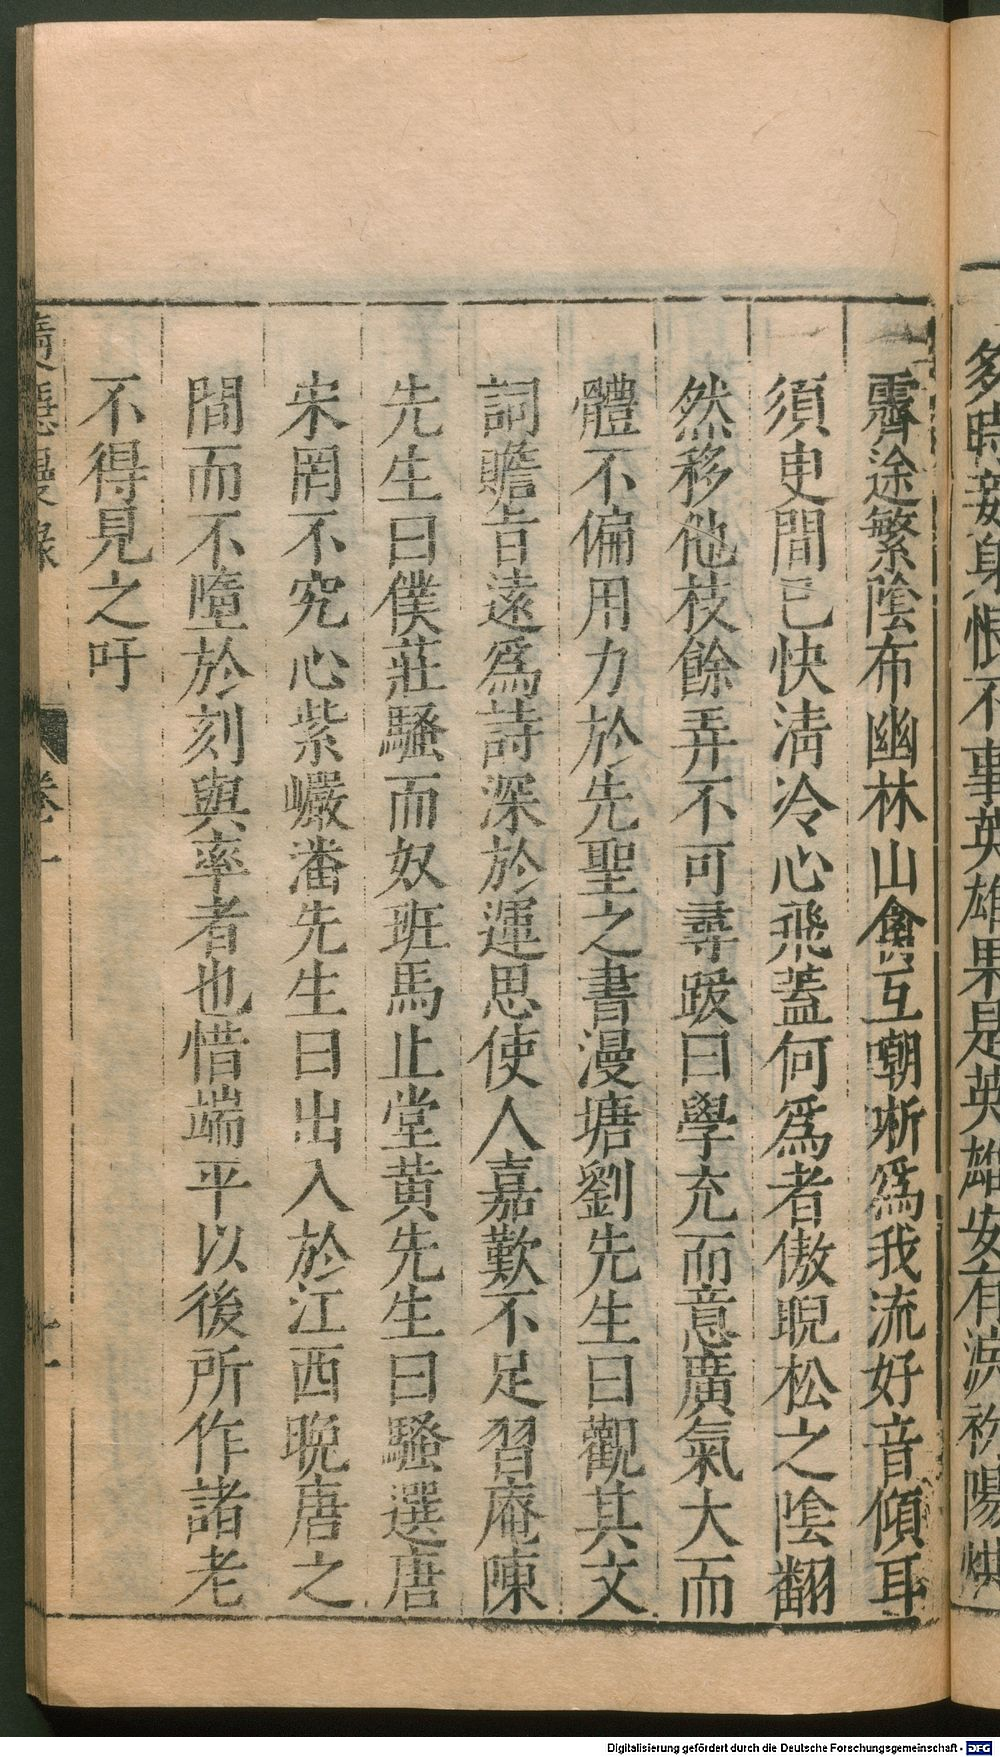 多時
不事英雄果是英雄安有
霽途繁陰布幽林山禽互嘲哳爲我流好音傾耳
須臾間已快淸冷心飛蓋何爲者傲睨松之陰翻
然移他枝餘弄不可尋跋曰學充而意廣氣大而
體不偏用力於先聖之書漫塘劉先生曰觀其文
詞贍旨遠爲詩深於運思使人嘉歎不足習庵陳
先生曰僕莊騷而奴班馬止堂黄先生曰騷選唐
宋罔不究心紫巖潘先生曰出入於江西晚唐之
間而不墮於刻與率者也惜端平以後所作諸老
不得見之吁
卷十
Digitalisierung gefördert durch die Deutsche Forschungsgemeinschaft - DFG